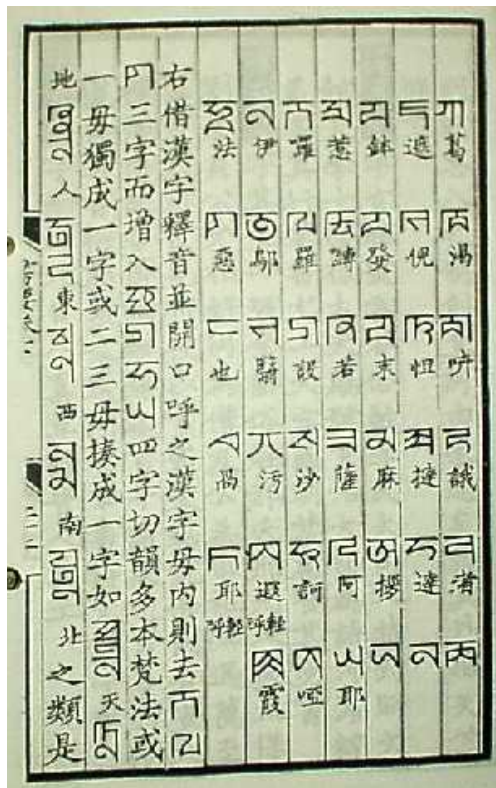 ꡀ葛 ꡁ渴 ꡂ ꡃ誐 ꡄ者 ꡅ
ꡆ遮 ꡇ倪 ꡈ怛 ꡉ撻 ꡊ達 ꡋ
ꡌ鉢 ꡍ發 ꡎ末 ꡏ麻 ꡐ拶 ꡑ
ꡒ惹 ꡓ ꡔ若 ꡕ薩 ꡖ阿 ꡗ耶
ꡘ囉 ꡙ羅 ꡚ設 ꡛ沙 ꡜ訶 ꡝ啞
ꡞ伊 ꡟ鄔 ꡠ翳 ꡡ污 ꡢ遐輕呼 ꡣ霞
ꡤ法 ꡥ惡 ꡦ也 ꡧ ꡨ耶輕呼
右借漢字釋音並開口呼之漢字母內則去
三字而增入 四字切韻多本梵法或
一毋獨成一字或二三毋揍成一字如 天
地 人 東 西 南 北之類是